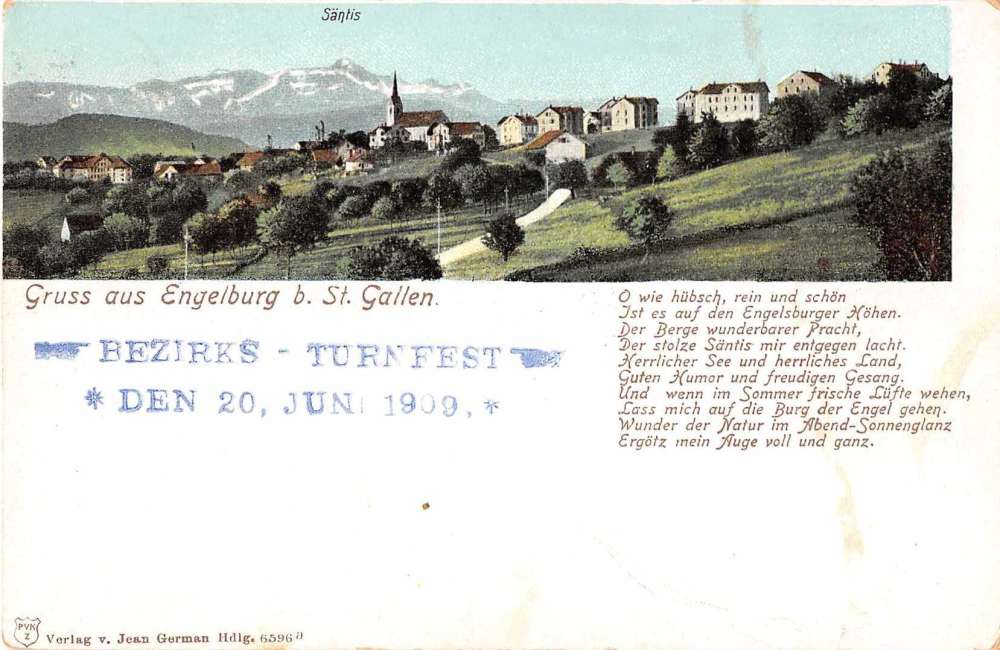 Säntis
Gruss aus Engelburg b. St. Gallen.
BEZIRKS - TURNFEST
* DEN 20, JUNI 1909, *
O wie hübsch, rein und schön
Ist es auf den Engelsburger Höhen.
Der Berge wunderbarer Pracht,
Der stolze Säntis mir entgegen lacht.
Herrlicher See und herrliches Land,
Guten Humor und freudigen Gesang.
Und wenn im Sommer frische Lüfte wehen,
Lass mich auf die Burg der Engel gehen.
Wunder der Natur im Abend-Sonnenglanz
Ergötz mein Auge voll und ganz.
PVK
Z
Verlag v. Jean German Hdlg. 6596 a